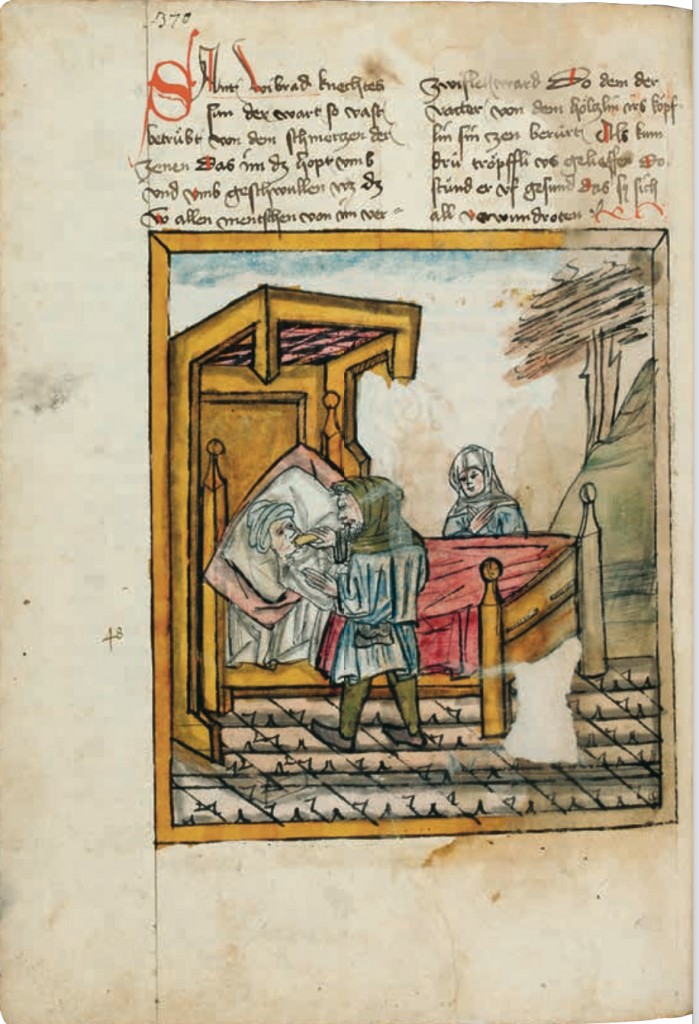 370
Sant wibrad knechtes
sun der wart so vast
betrübt von dem schmertzen der
zenen Das im dz hopt vmb
vnd vmb geschwullen wz dz
so allen mentschen von im ver-
zwiflet ward Do dem der
vatter von dem höltzlin
lin sin zen berürt Als kum
dru tröpffli vs geliessen Do
stuͤnd er vf gesund das sy sich
all verwundroten
48